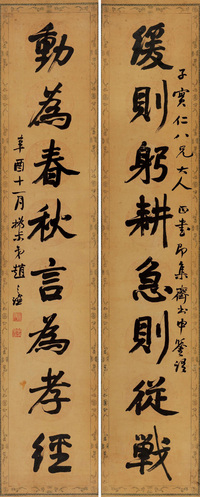 子實仁八兄大人正書即集齋
緩則躬耕急則從戰
動為春秋言為孝經
辛酉十一月弟趙之謙